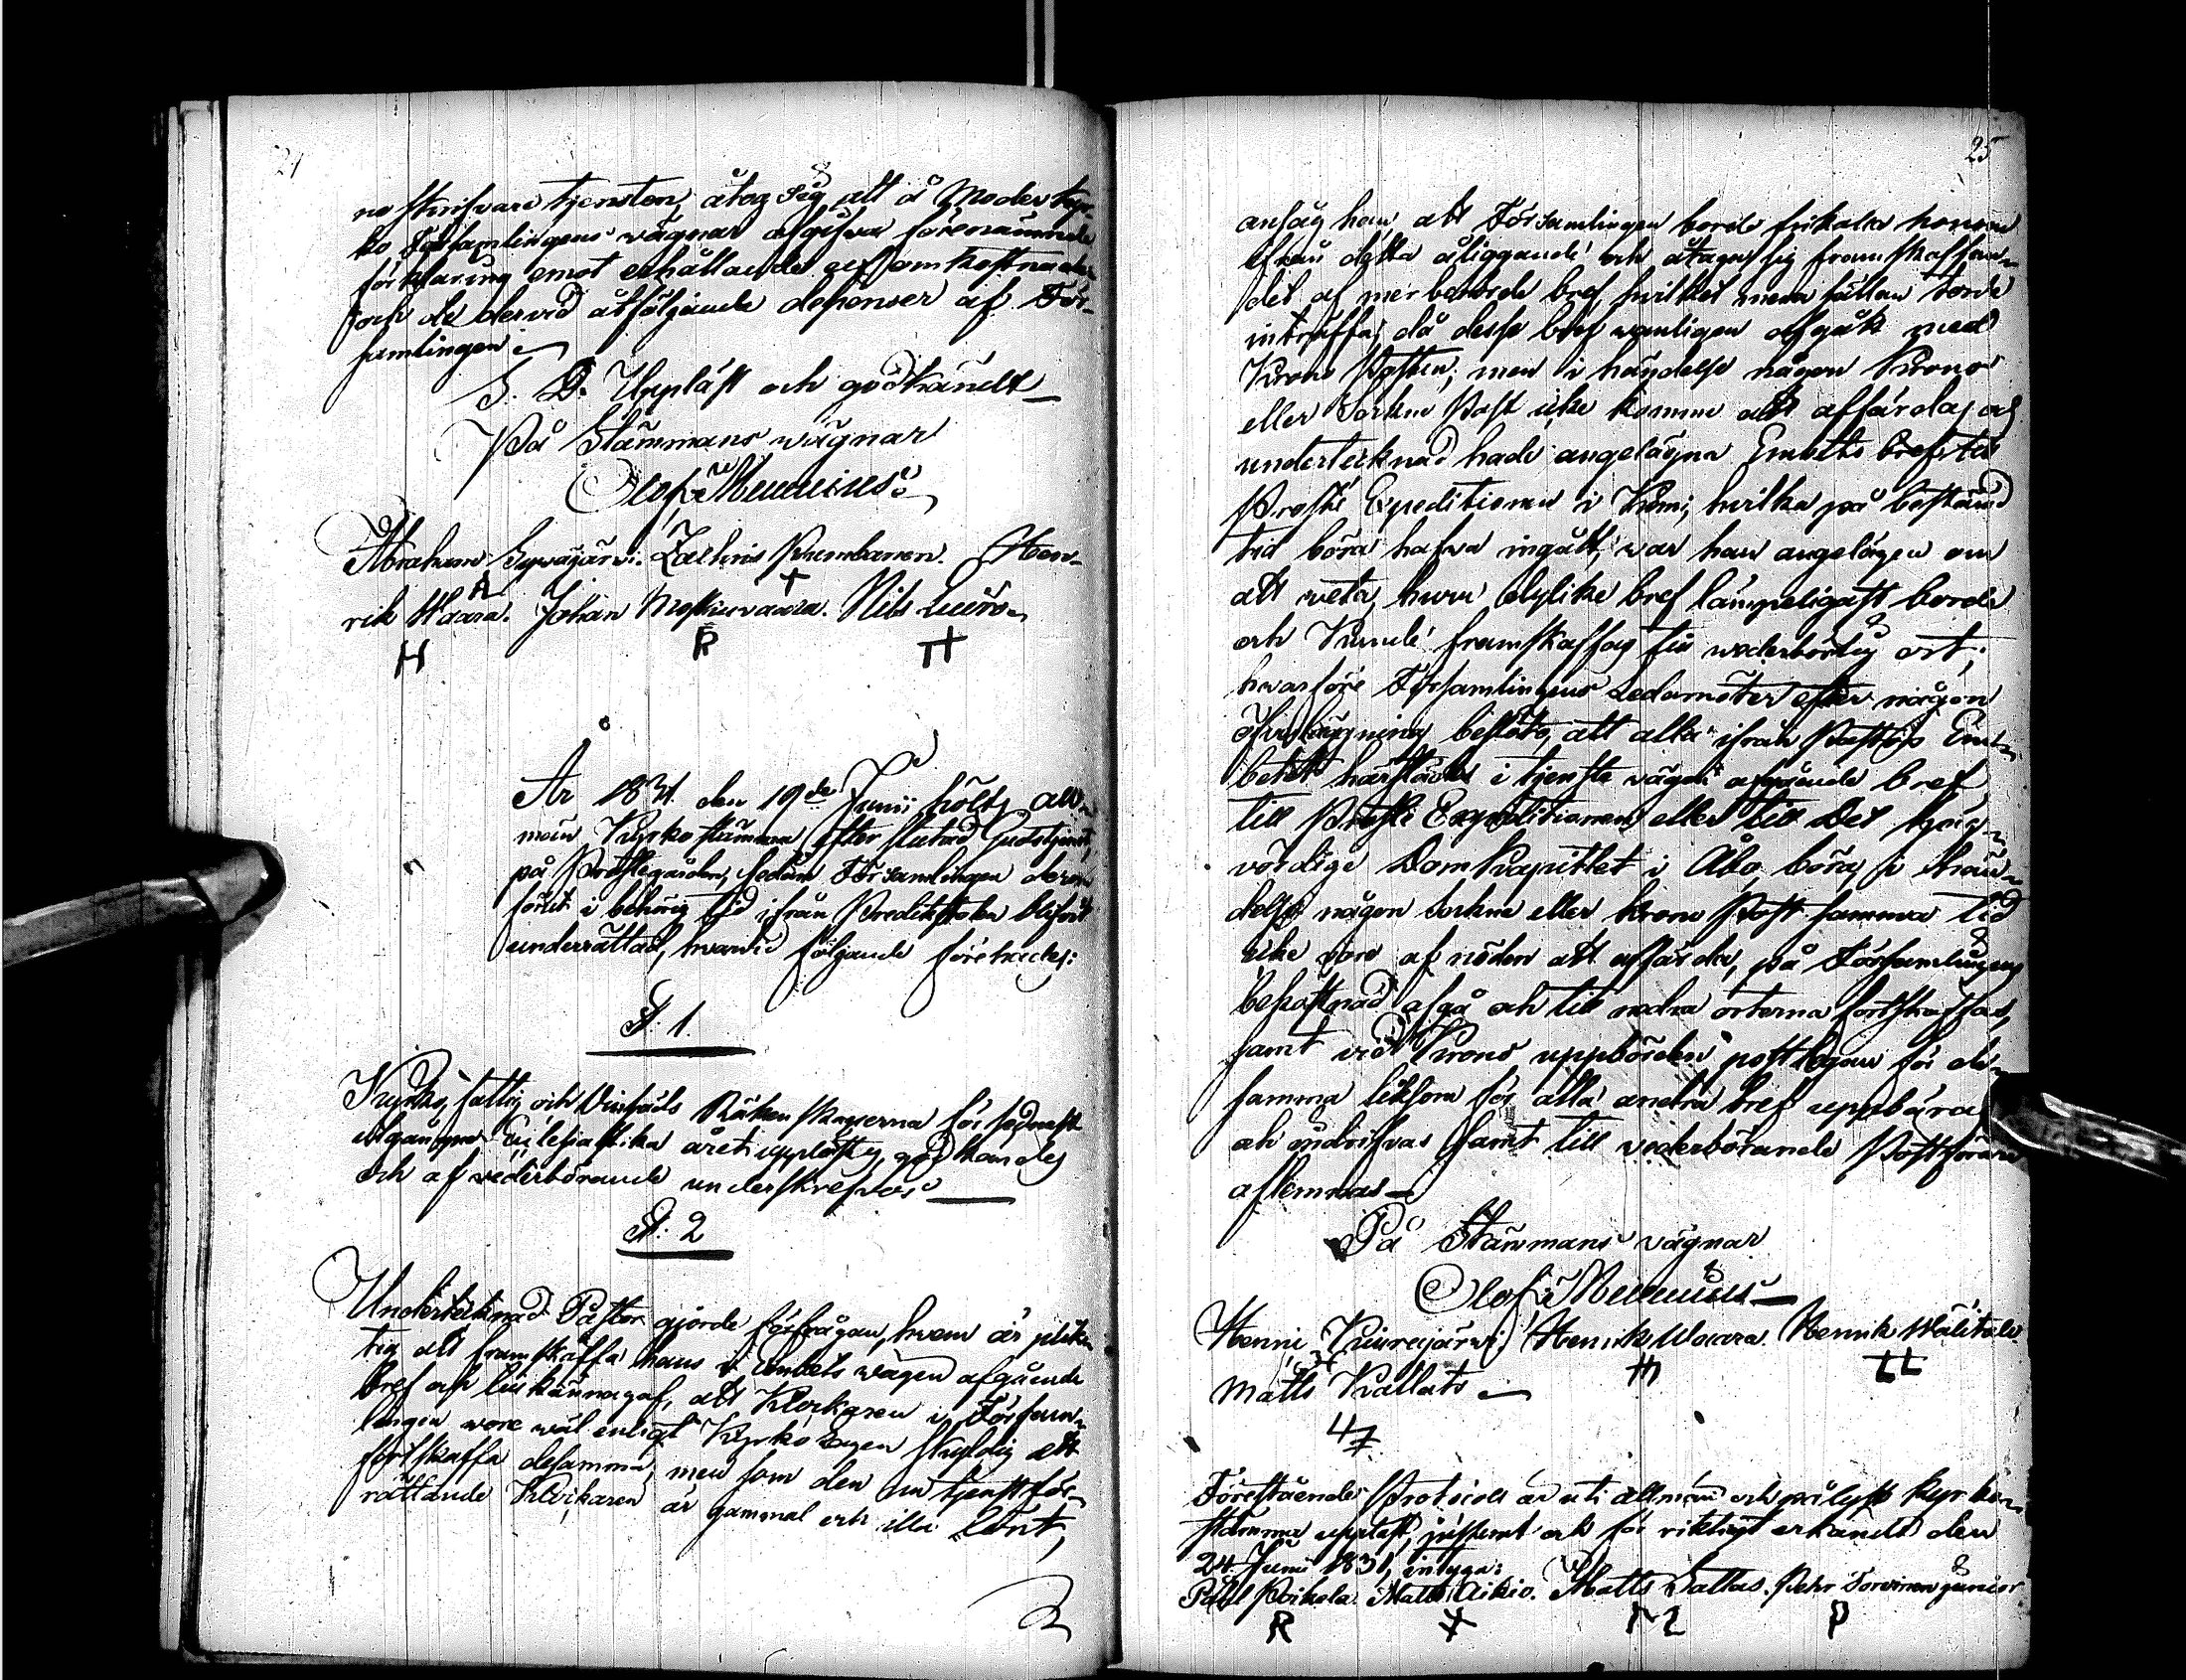 24
no skrifvare tjensten, åtog sig att å Moderkyr-
ko Församlingens vägnar afgifva förenämnde
förklaring emot erhållande af omkostnader
och de dervid åtföljande depenser af För-
samlingen.
S. D. Uppläst och godkändt
På Stämmans vägnar
Olof
Abraham Zachris Hen-
rik Waara. Johan Nils
H R H
År 1831 den 19de Junii hölts all-
män Kyrkostämma efter slutad Gudstjenst,
på Prestegården, sedan Församlingen derom
förut i behörig tid ifrån Predikstolen blifvit
underrättad, hvarvid följande förehades:
§. 1.
Kyrko, fattig och Räkenskaperna för sednast
utgångne Ecclesiastika året upplästes, godkändes
och af vederbörande underskrefvos.
§. 2
Undertecknad Pastor gjorde förfrågan, hvem är plik-
tig att framskaffa hans i Embets vägen afgående
bref och tillkännagaf, att Klockaren i Försam-
lingen wore wäl enligt Kyrko Lagen skyldig att
fortskaffa desamma, men som den nu tjenstför-
rättande Klockaren är gammal och illa lönt,
25
ansåg han, att Församlingen borde frikalla honom
ifrån detta åliggande och åtaga sig framskaffan-
det af merberörde bref, hvilket mera sällan torde
inträffa, då desse bref wanligen afgått med
Krono Posten; men i händelse någon Krono
eller Sockne Post icke komme att affärdas och
undertecknad hade angelägna Embets bref till
Prosts Expeditionen i Kemi, hvilka på bestämd
tid böra hafva ingått, war han angelägen om
att weta, huru dylike bref lämpeligast borde
och kunde framskaffas till wederbörlig ort;
hvarföre Församlingens Ledamöter efter någon
öfverläggning beslöto, att alla ifrån Pastors Em-
betet härstädes i tjenste vägen afgående bref
till Prosts Expeditionen eller till Det Hög-
vördige DomKapitlet i Åbo, böra, i hän-
delse någon Sockne eller Krono Post samma tid
icke vore af nöden att affärda, på Församlingens
bekostnad afgå och till nedra orterna fortskaffas,
samt vid Krono uppbörden postlegan för de-
samma liksom för alla andra bref uppbäras
och indrifvas samt till vederbörande Postförare
aflemnas
På Stämmans vägnar
Olof
Henric Henrik Waara. Henrik
Matts Kallats
Föreståendes Protocoll är uti allmän och pålyst kyrko-
stämma uppläst, justerat och för riktigt erkändt den
24 Junii 1831, intyga:
Påhl Poikela. Matts Aikio. Matts Sattas. Pehr Torvinen junior
R X M P